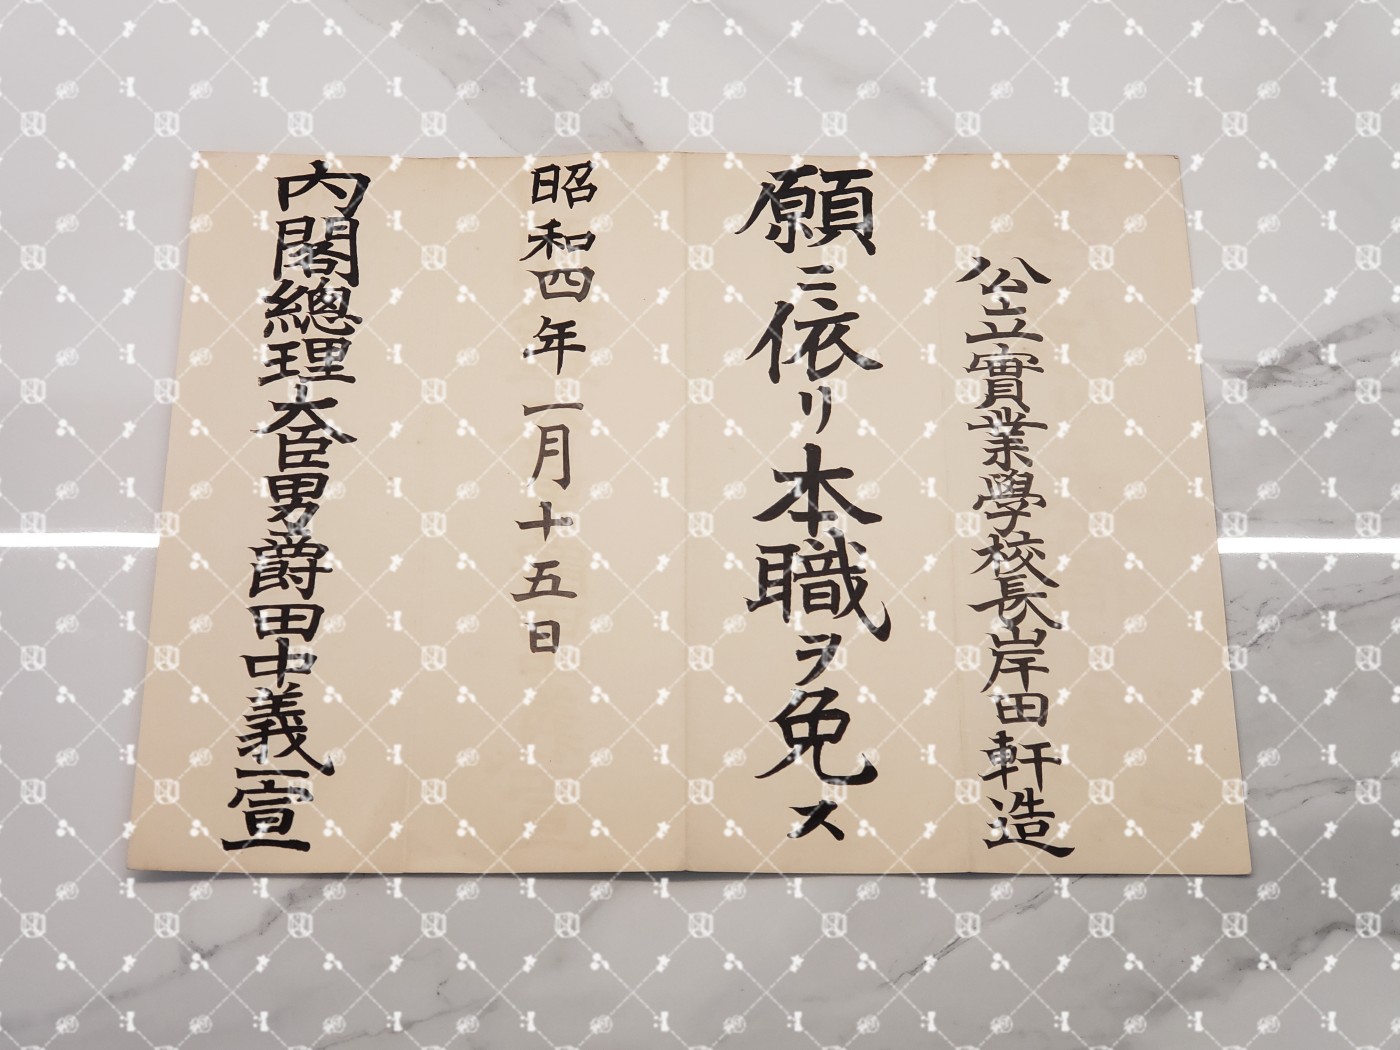 公立實業學校長岸田軒造
願ニ依リ本職ヲ免ス
昭和四年一月十五日
內閣總理大臣男爵田中義一宣